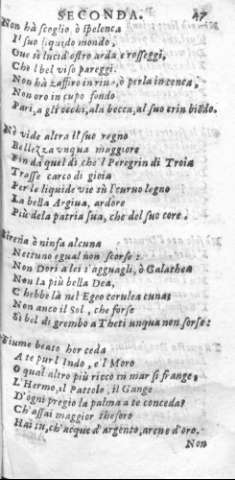 SECONDA. 47
Non hà scoglio, ò spelonca
Il suo liquido mondo,
Oue sì lucid'ostro arda e rosseggi,
Che l bel viso pareggi.
Non hà zaffiro in riua, ò perla in conca,
Non oro in cupo fondo
Pari, a gli occhi, ala bocca, al suo crin biõdo.
Nè vide altra il suo regno
Bellezza vnqua maggiore
Fin da quel dì che'l Peregrin di Troia
Trasse carco di gioia
Per le liquide vie sù l'curuo legno
La bella Argiua, ardore
Più dela patria sua, che del suo core.
Sirena ò ninfa alcuna
Nettuno egual non scorse:
Non Dori a lei s'agguagli, ò Galathea
Non la più bella Dea,
C'hebbe là nel Egeo cerulea cuna;
Non anco il Sol, che forse
Sì bel di grembo a Theti unqua non sorse:
Fiume beato hor ceda
A te pur l'Indo, e l'Moro
O qual altro più ricco in mar si frange,
L'Hermo, il Pattolo, il Gange
D'ogni pregio la palma a te conceda?
Ch'assai maggior thesoro
Hai tu, ch'acque d'argento, arene d'oro.
Non